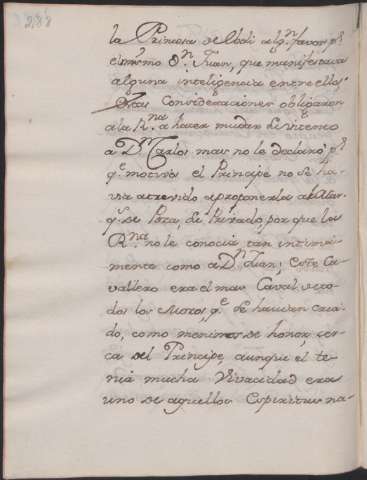 288
la Princesa de Eboli algn. favor pr.
el mismo Dn. Juan, que manifestava
alguna inteligencia entre ellos
Estas Considerasiones obligaron
a la Rna. a hacer mudar de
a Dn. Carlos mas no le declaró pr.
qe. motivos el Principe no se ha-
via atrevido a proponerla al Mar-
qs. de Poza, de Privado por que la
Rna. no le conocia tan intima-
mente como a Dn. Juan; este Ca-
vallero era el mas Caval de to-
dos los Mozos qe. se havian cria-
do, como meninos de honor cer-
ca del Principe, aunque el te-
nia mucha Vivacidad era
uno de aquellos Espiritus na-